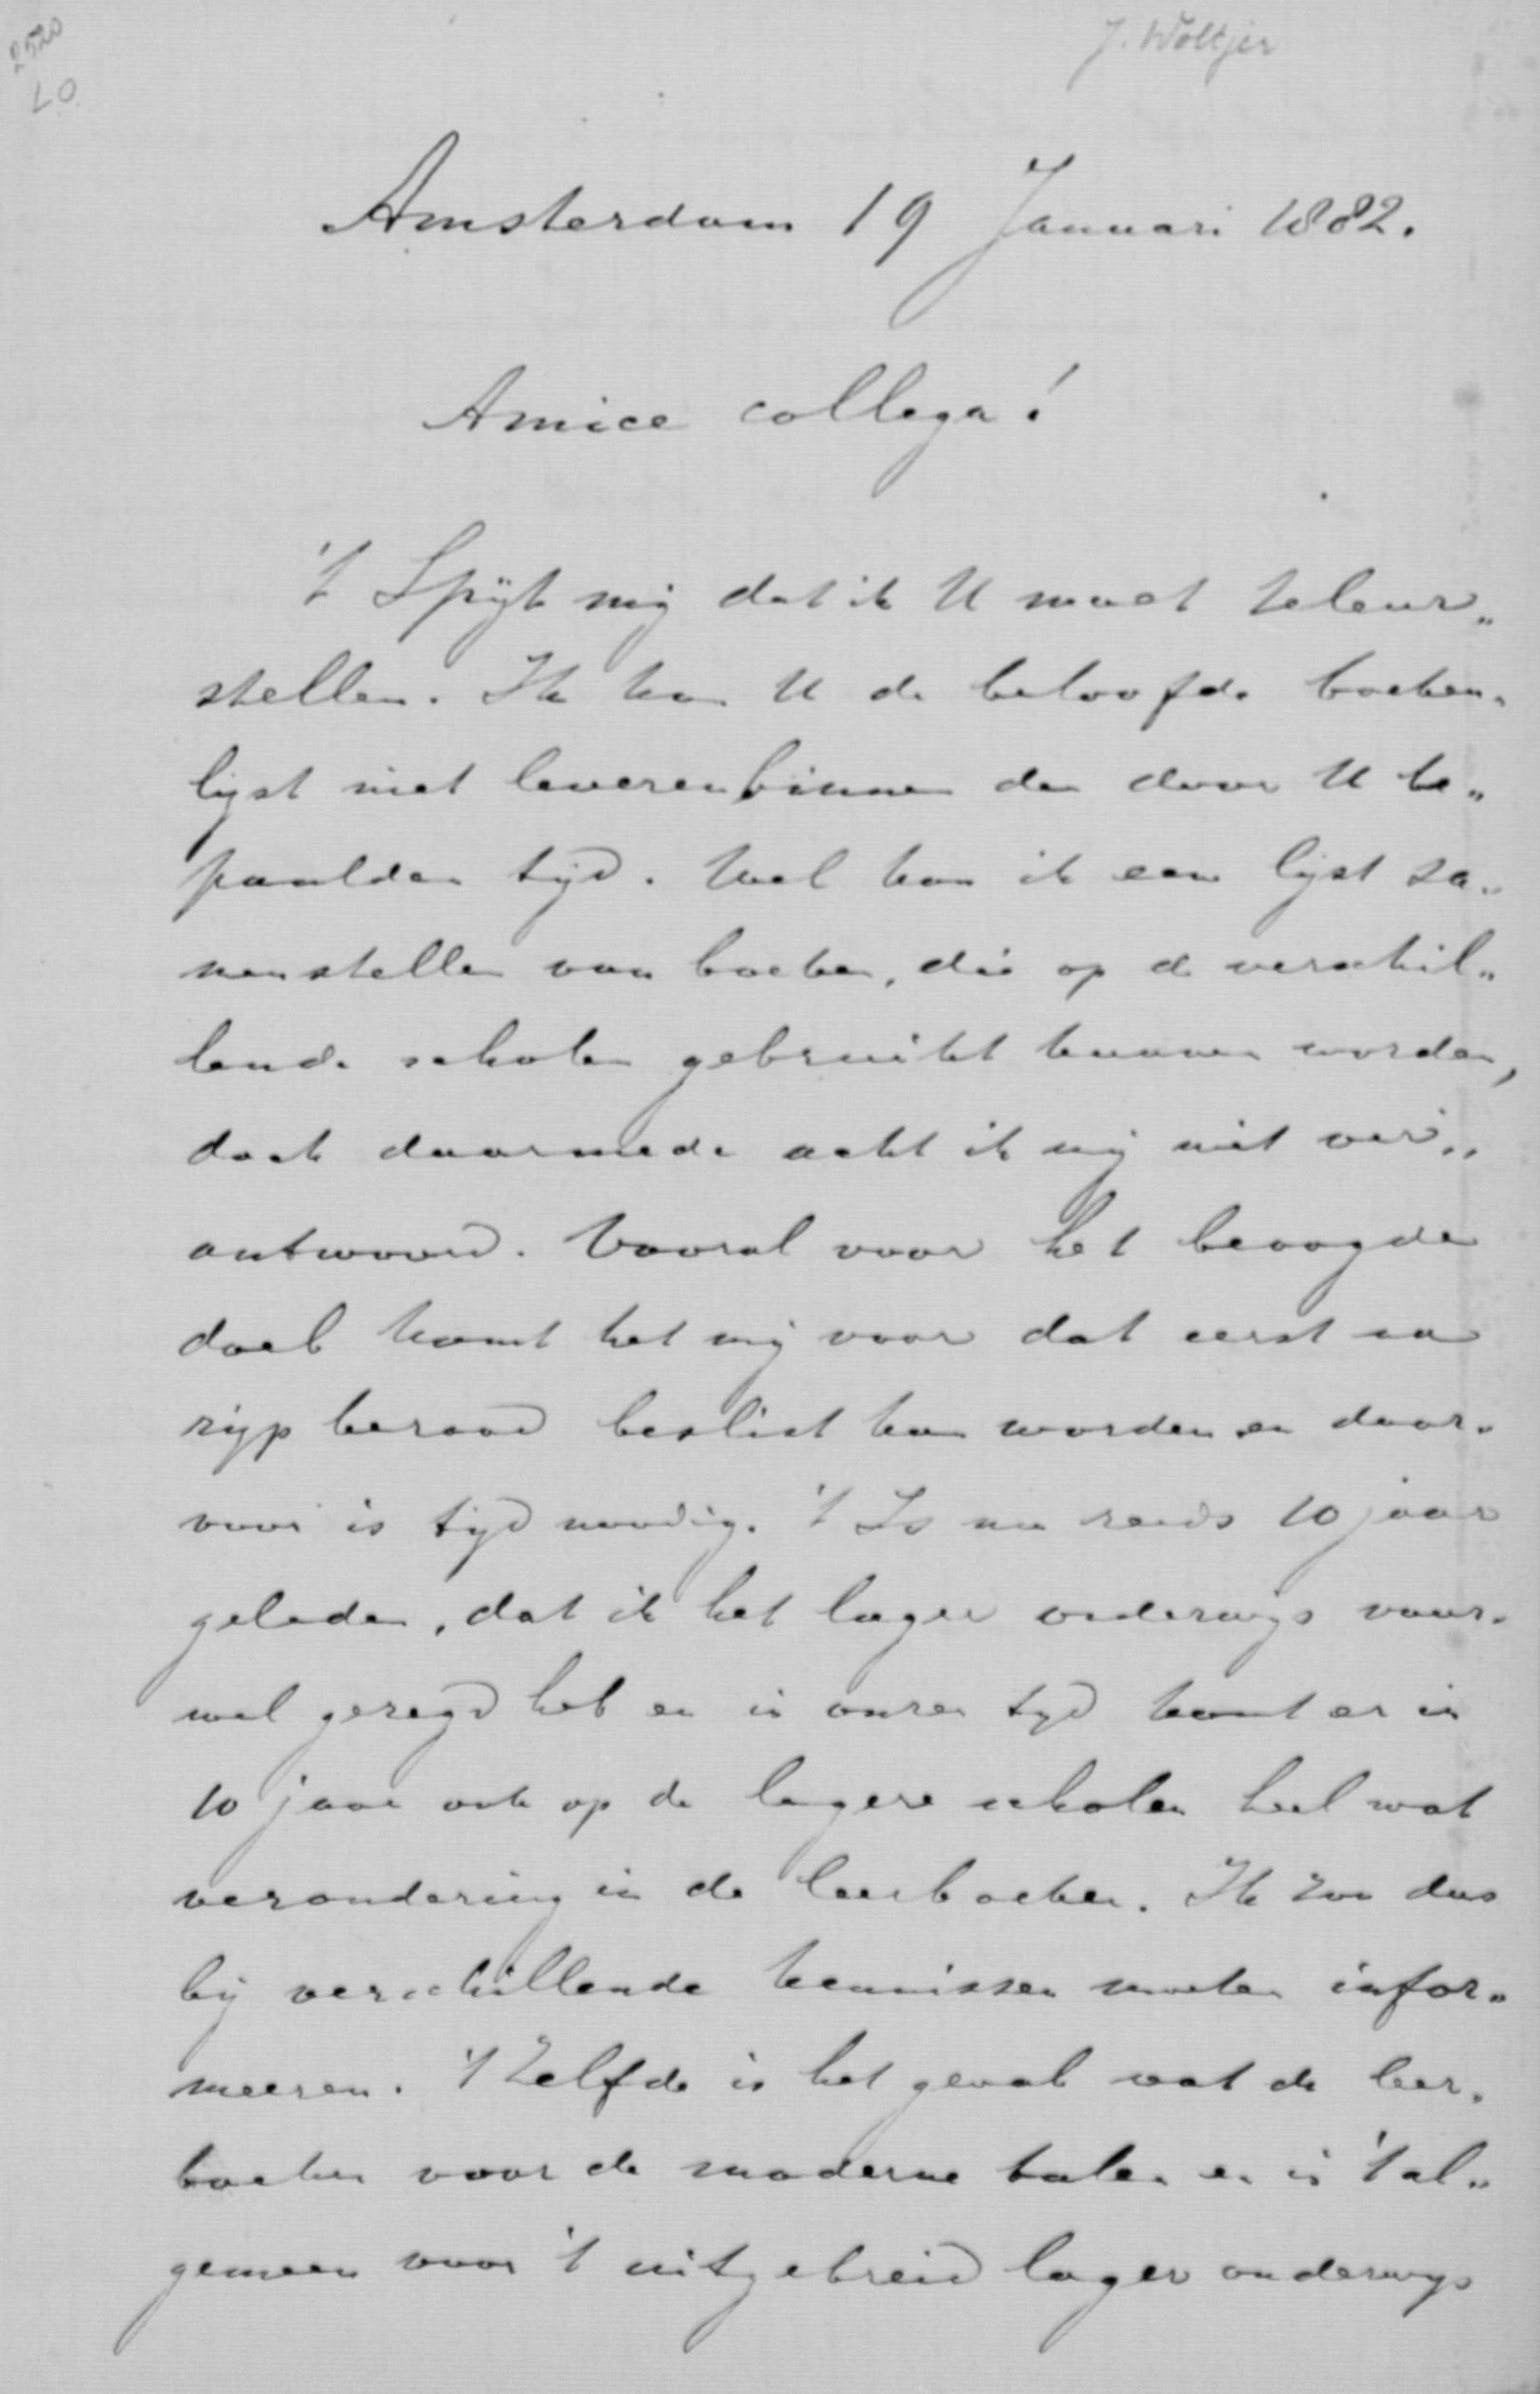 2520
LO
J. Woltjer
Amsterdam 19 Januari 1882.
Amice collega!
't Spijt mij dat ik U moet teleur„
stellen. Ik kan U de beloofde boeken„
lijst niet leveren binnen den door U be„
paalden tijd. Wel kan ik een lijst sa„
menstellen van boeken, die op de verschil„
lende scholen gebruikt kunnen worden,
doch daarmede acht ik mij niet ver„
antwoord. Vooral voor het beoogde
doel komt het mij voor dat eerst na
rijp beraad beslist kan worden en daar„
voor is tijd noodig. 't Is nu reeds 10 jaar
geleden, dat ik het lager onderwijs vaar„
wel gezegd heb en in onzen tijd komt er in
10 jaar ook op de lagere scholen heel wat
verandering in de leerboeken. Ik zou dus
bij verschillende kennissen moeten infor„
meeren. 't Zelfde is het geval wat de leer„
boeken voor de moderne talen en in 't al„
gemeen voor 't uitgebreid lager onderwijs